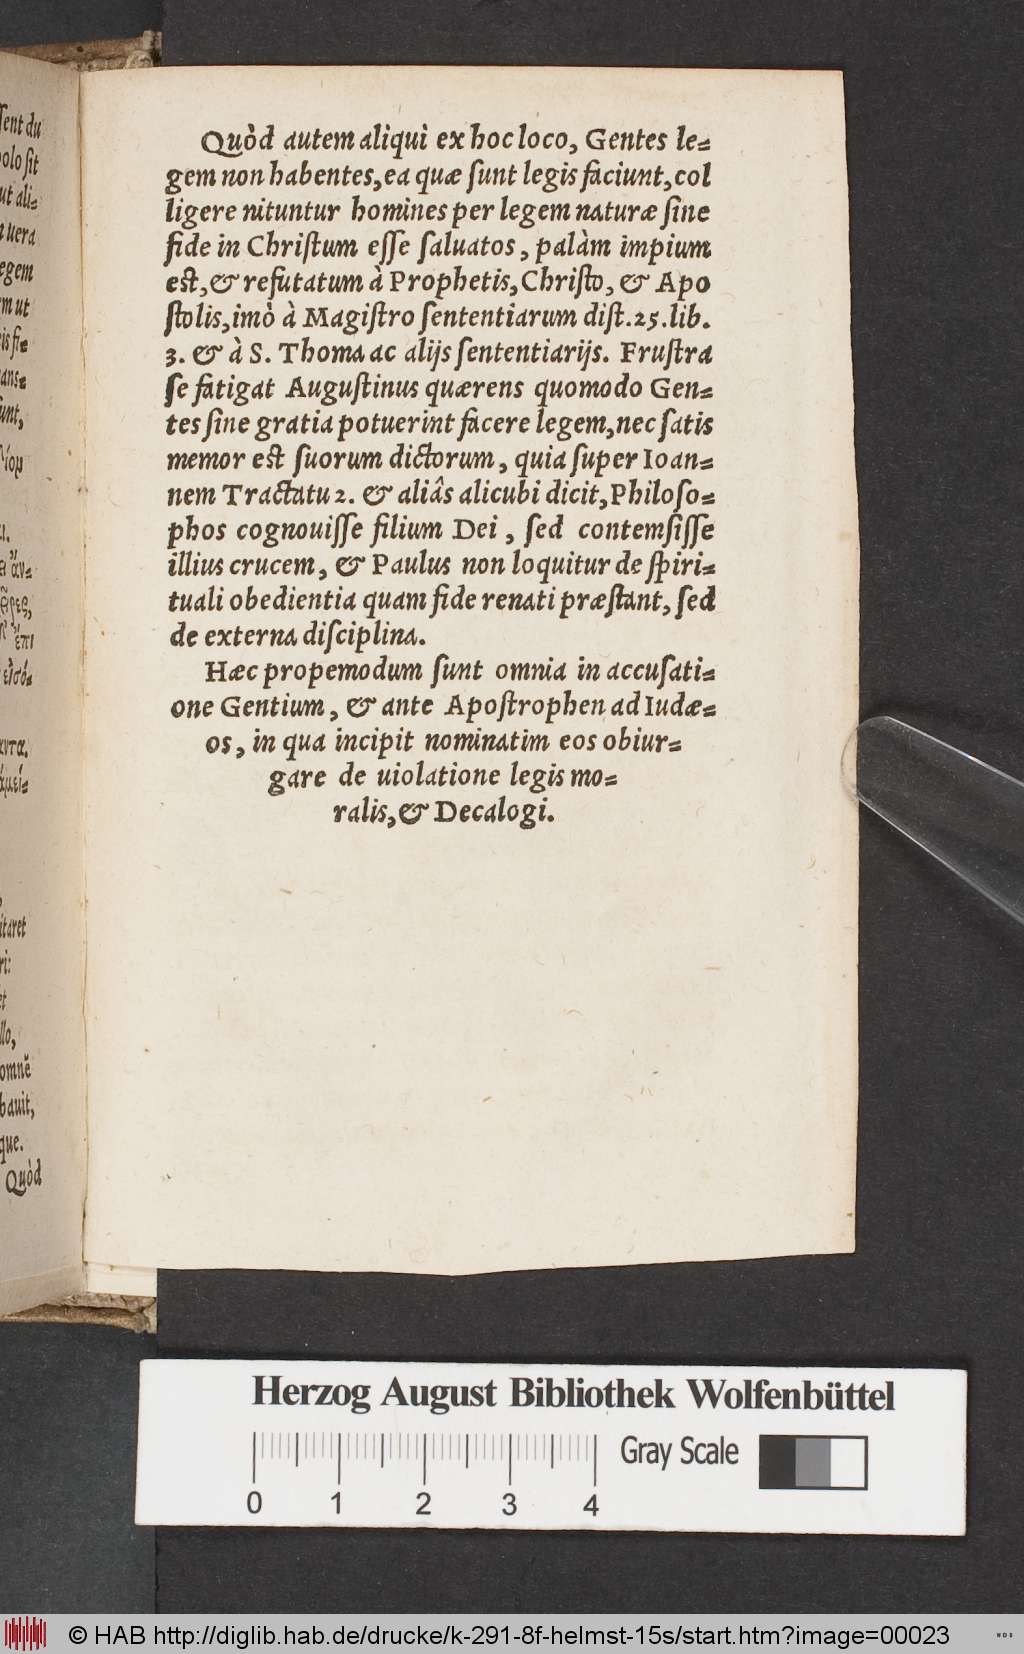 Quòd autem aliqui ex hoc loco, Gentes le⸗
gem non habentes, ea quæ ſunt legis faciunt, col
ligere nituntur homines per legem naturæ ſine
fide in Chriſtum eſſe ſaluatos, palàm impium
est, & refutatum à Prophetis, Chriſto, & Apo
ſtolis, imò à Magiſtro ſententiarum diſt. 25. lib.
3. & à S. Thoma ac alijs ſententiarijs. Fruſtra
ſe fatigat Auguſtinus quærens quomodo Gen⸗
tes ſine gratia potuerint facere legem, nec ſatis
memor est ſuorum dictorum, quia ſuper Ioan⸗
nem Tractatu 2. & aliâs alicubi dicit, Philoſo⸗
phos cognouiſſe filium Dei, ſed contemſiſſe
illius crucem, & Paulus non loquitur de ſpiri⸗
tuali obedientia quam fide renati præſtant, ſed
de externa diſciplina.
Hæc propemodum ſunt omnia in accuſati⸗
one Gentium, & ante Apoſtrophen ad Iudæ⸗
os, in qua incipit nominatim eos obiur⸗
gare de uiolatione legis mo⸗
ralis, & Decalogi.
ſent du
polo ſit
ut ali⸗
uera
legem
m ut
ſunt,
itaret
omnẽ
bauit,
que.
Quòd
Herzog August Bibliothek Wolfenbüttel
Gray Scale
0 1 2 3 4
© HAB http://diglib.hab.de/drucke/k-291-8f-helmst-15s/start.htm?image=00023